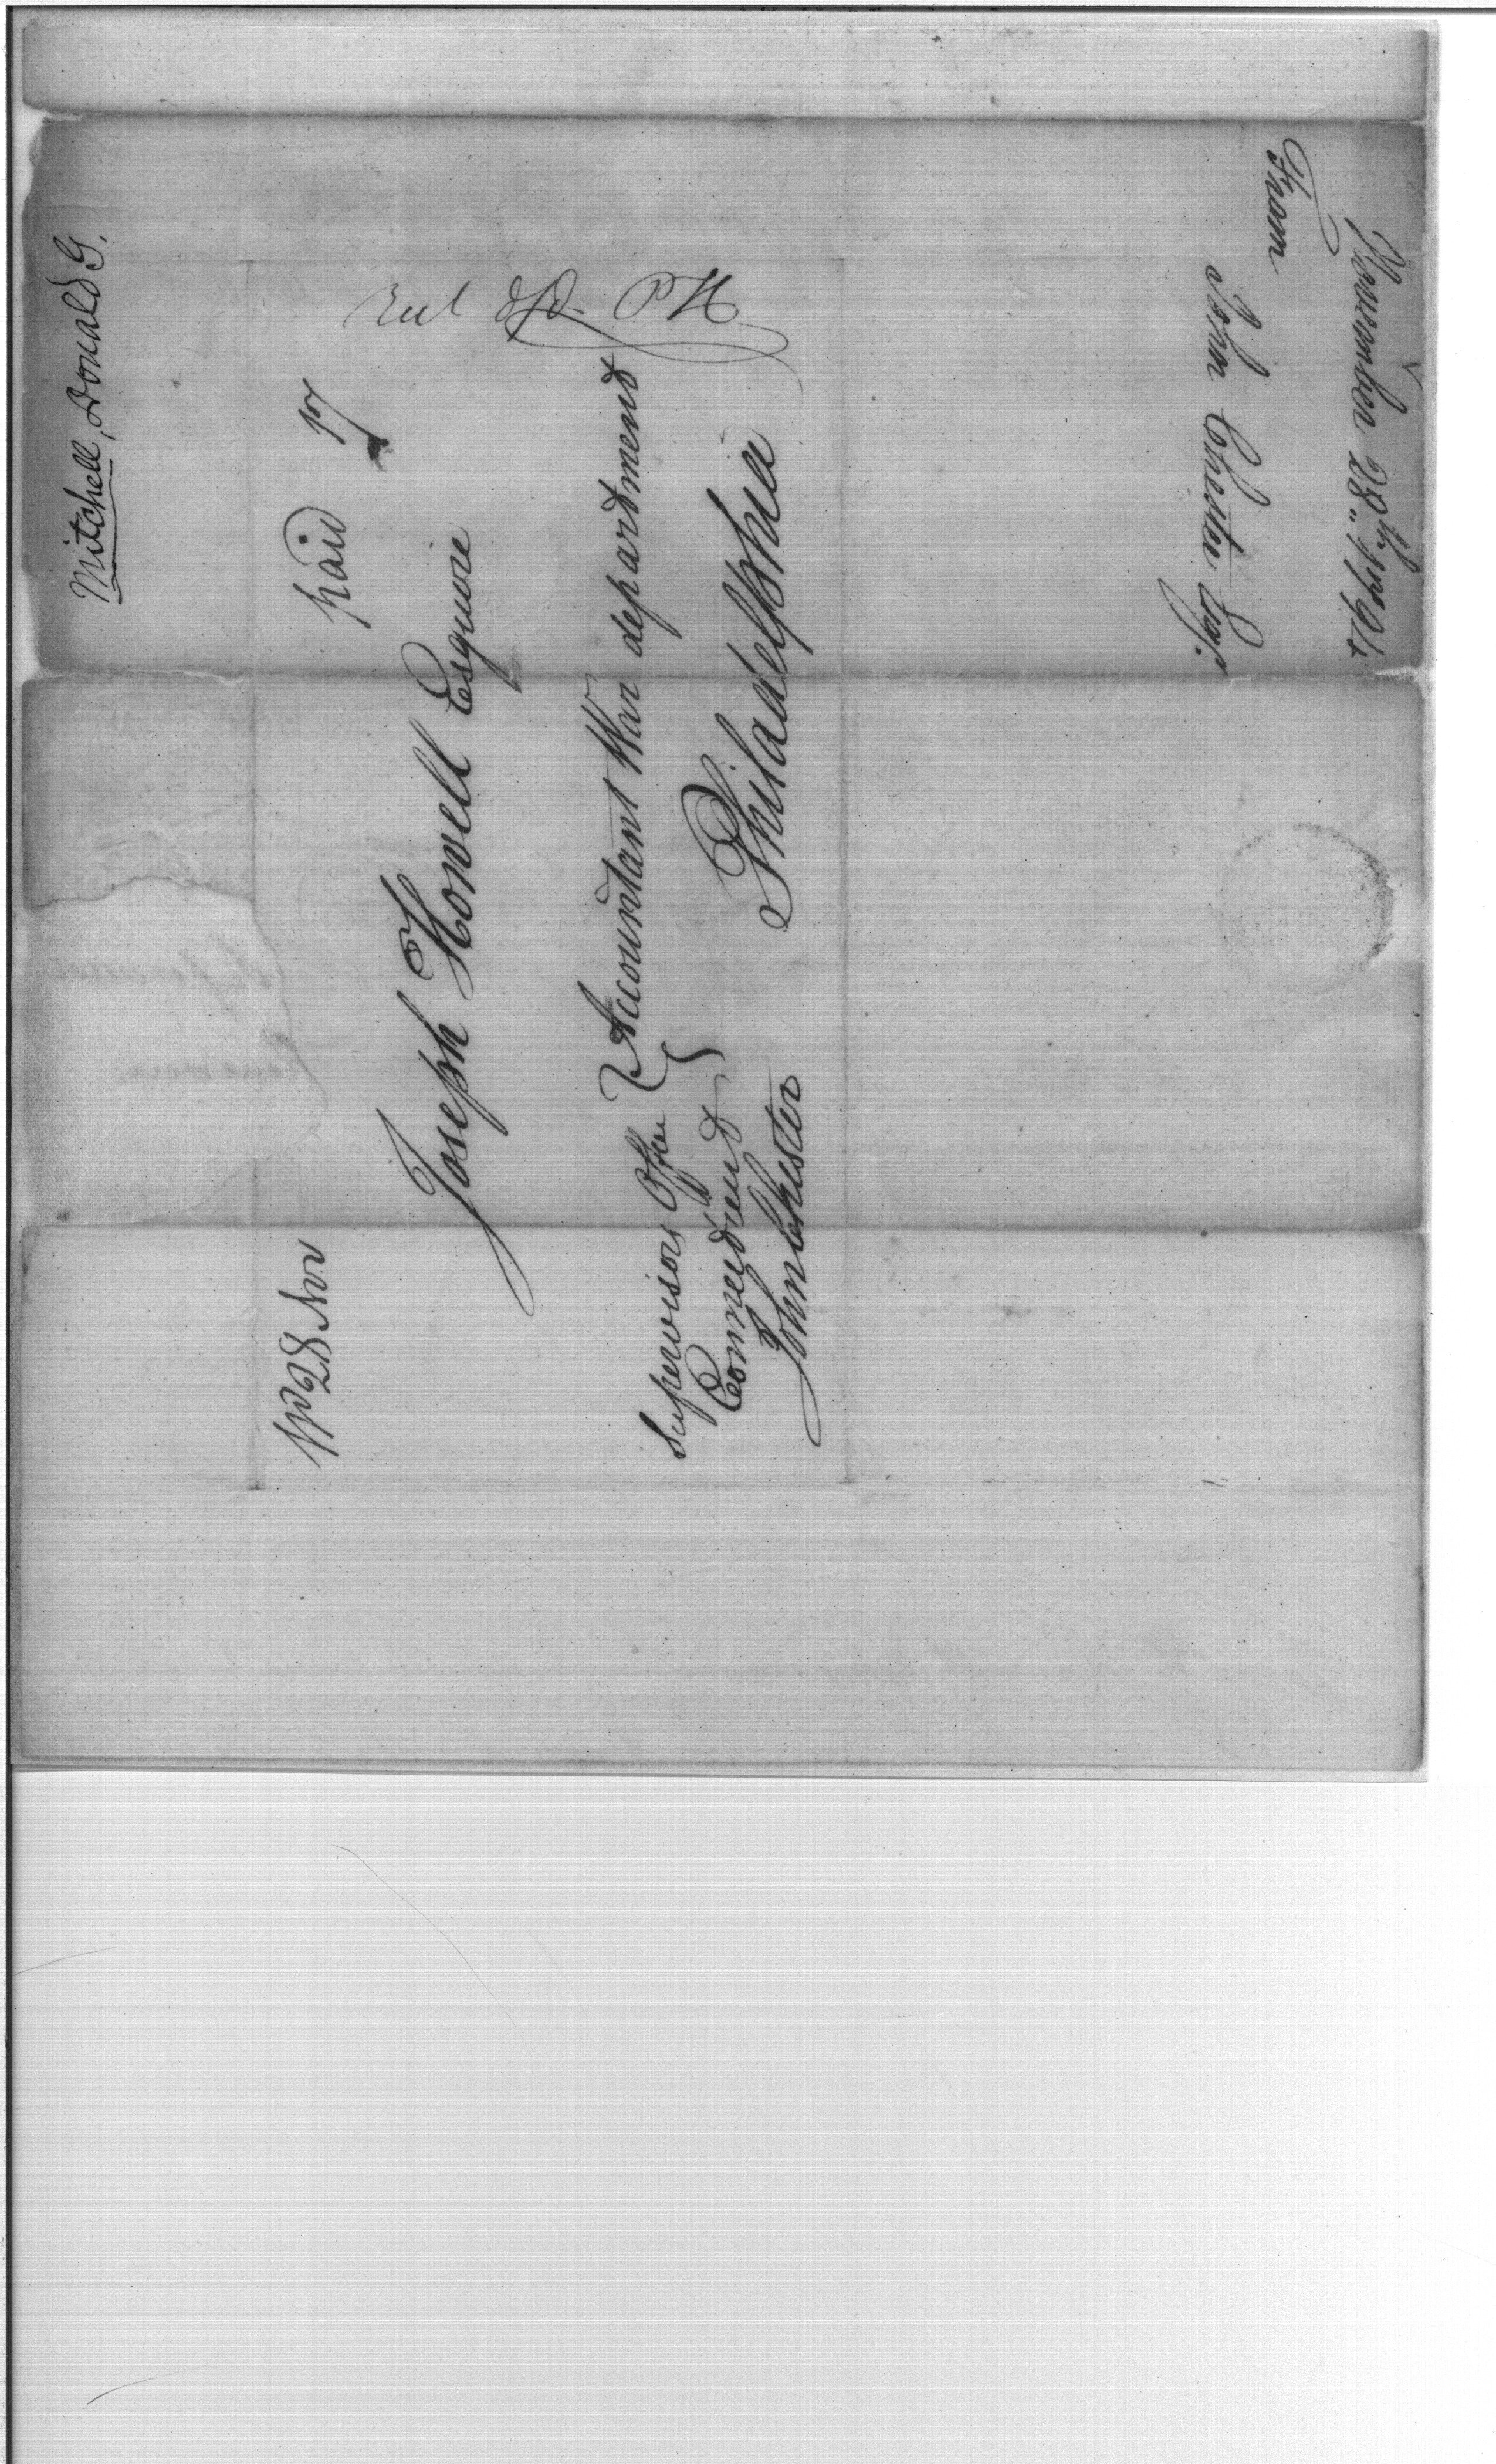 Mitchell, Donald G.
28 Nov
paid 17
Joseph Howell Esquire
Accountant War department
Philadelphia
Supervisors Office
Connecticut
John Chester
From
John Chester Esqr.
November 28th, 1794